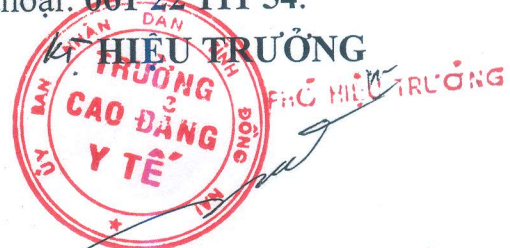 thoại: 061 22 111 54.
KT HIỆU TRƯỞNG
PHÓ HIỆU TRƯỞNG
ỦY BAN NHÂN DÂN TỈNH ĐỒNG NAI
TRƯỜNG
CAO ĐẲNG
Y TẾ